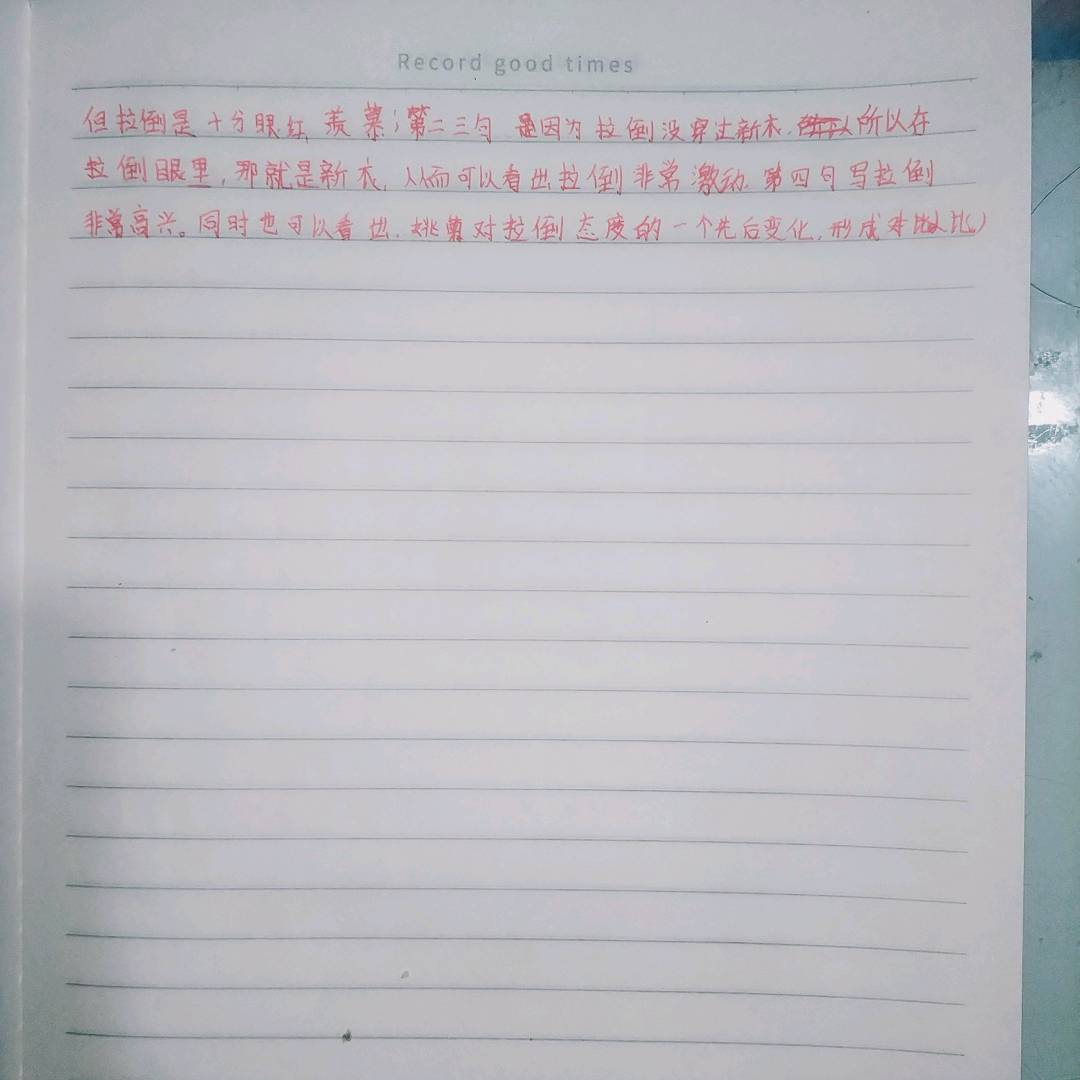 Record good times
但拉倒是十分眼红,羡慕;第二三句是因为拉倒没穿过新衣,所以在
拉倒眼里,那就是新衣,从而可以看出拉倒非常激动.第四句写拉倒
非常高兴。同时也可以看出.姚蔫对拉倒态度的一个先后变化,形成对比)